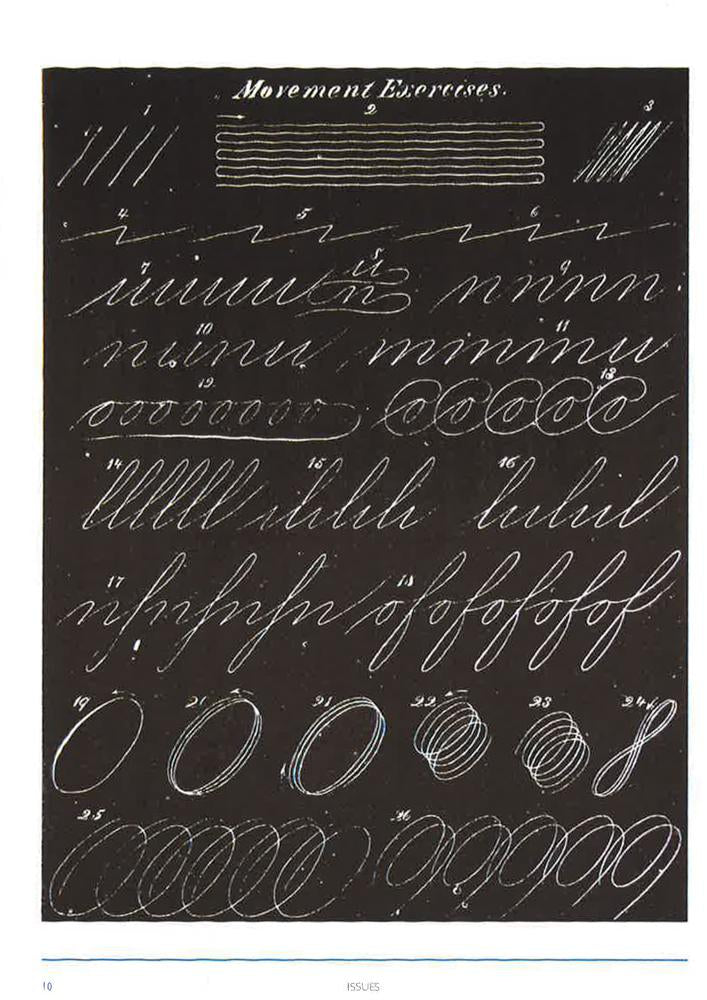 Movement Exercises.
1 2 3
4 5 6
7 8 u n 9 nnnnn
10 nunnu 11 minimu
12 ooooooooo 13 ooooo
14 llllll 15 16
17 18
19 20 21 22 23 24
25 26
10 ISSUES